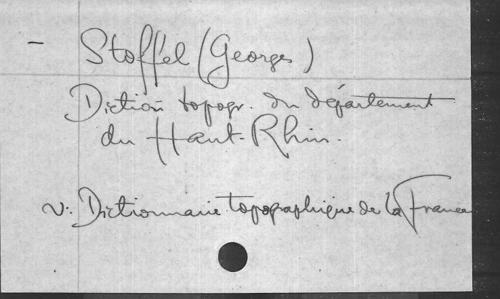 - Stoffel (Georges)
Diction topogr. du département
du Haut-Rhin.
v: Dictionnaire topographique de la France